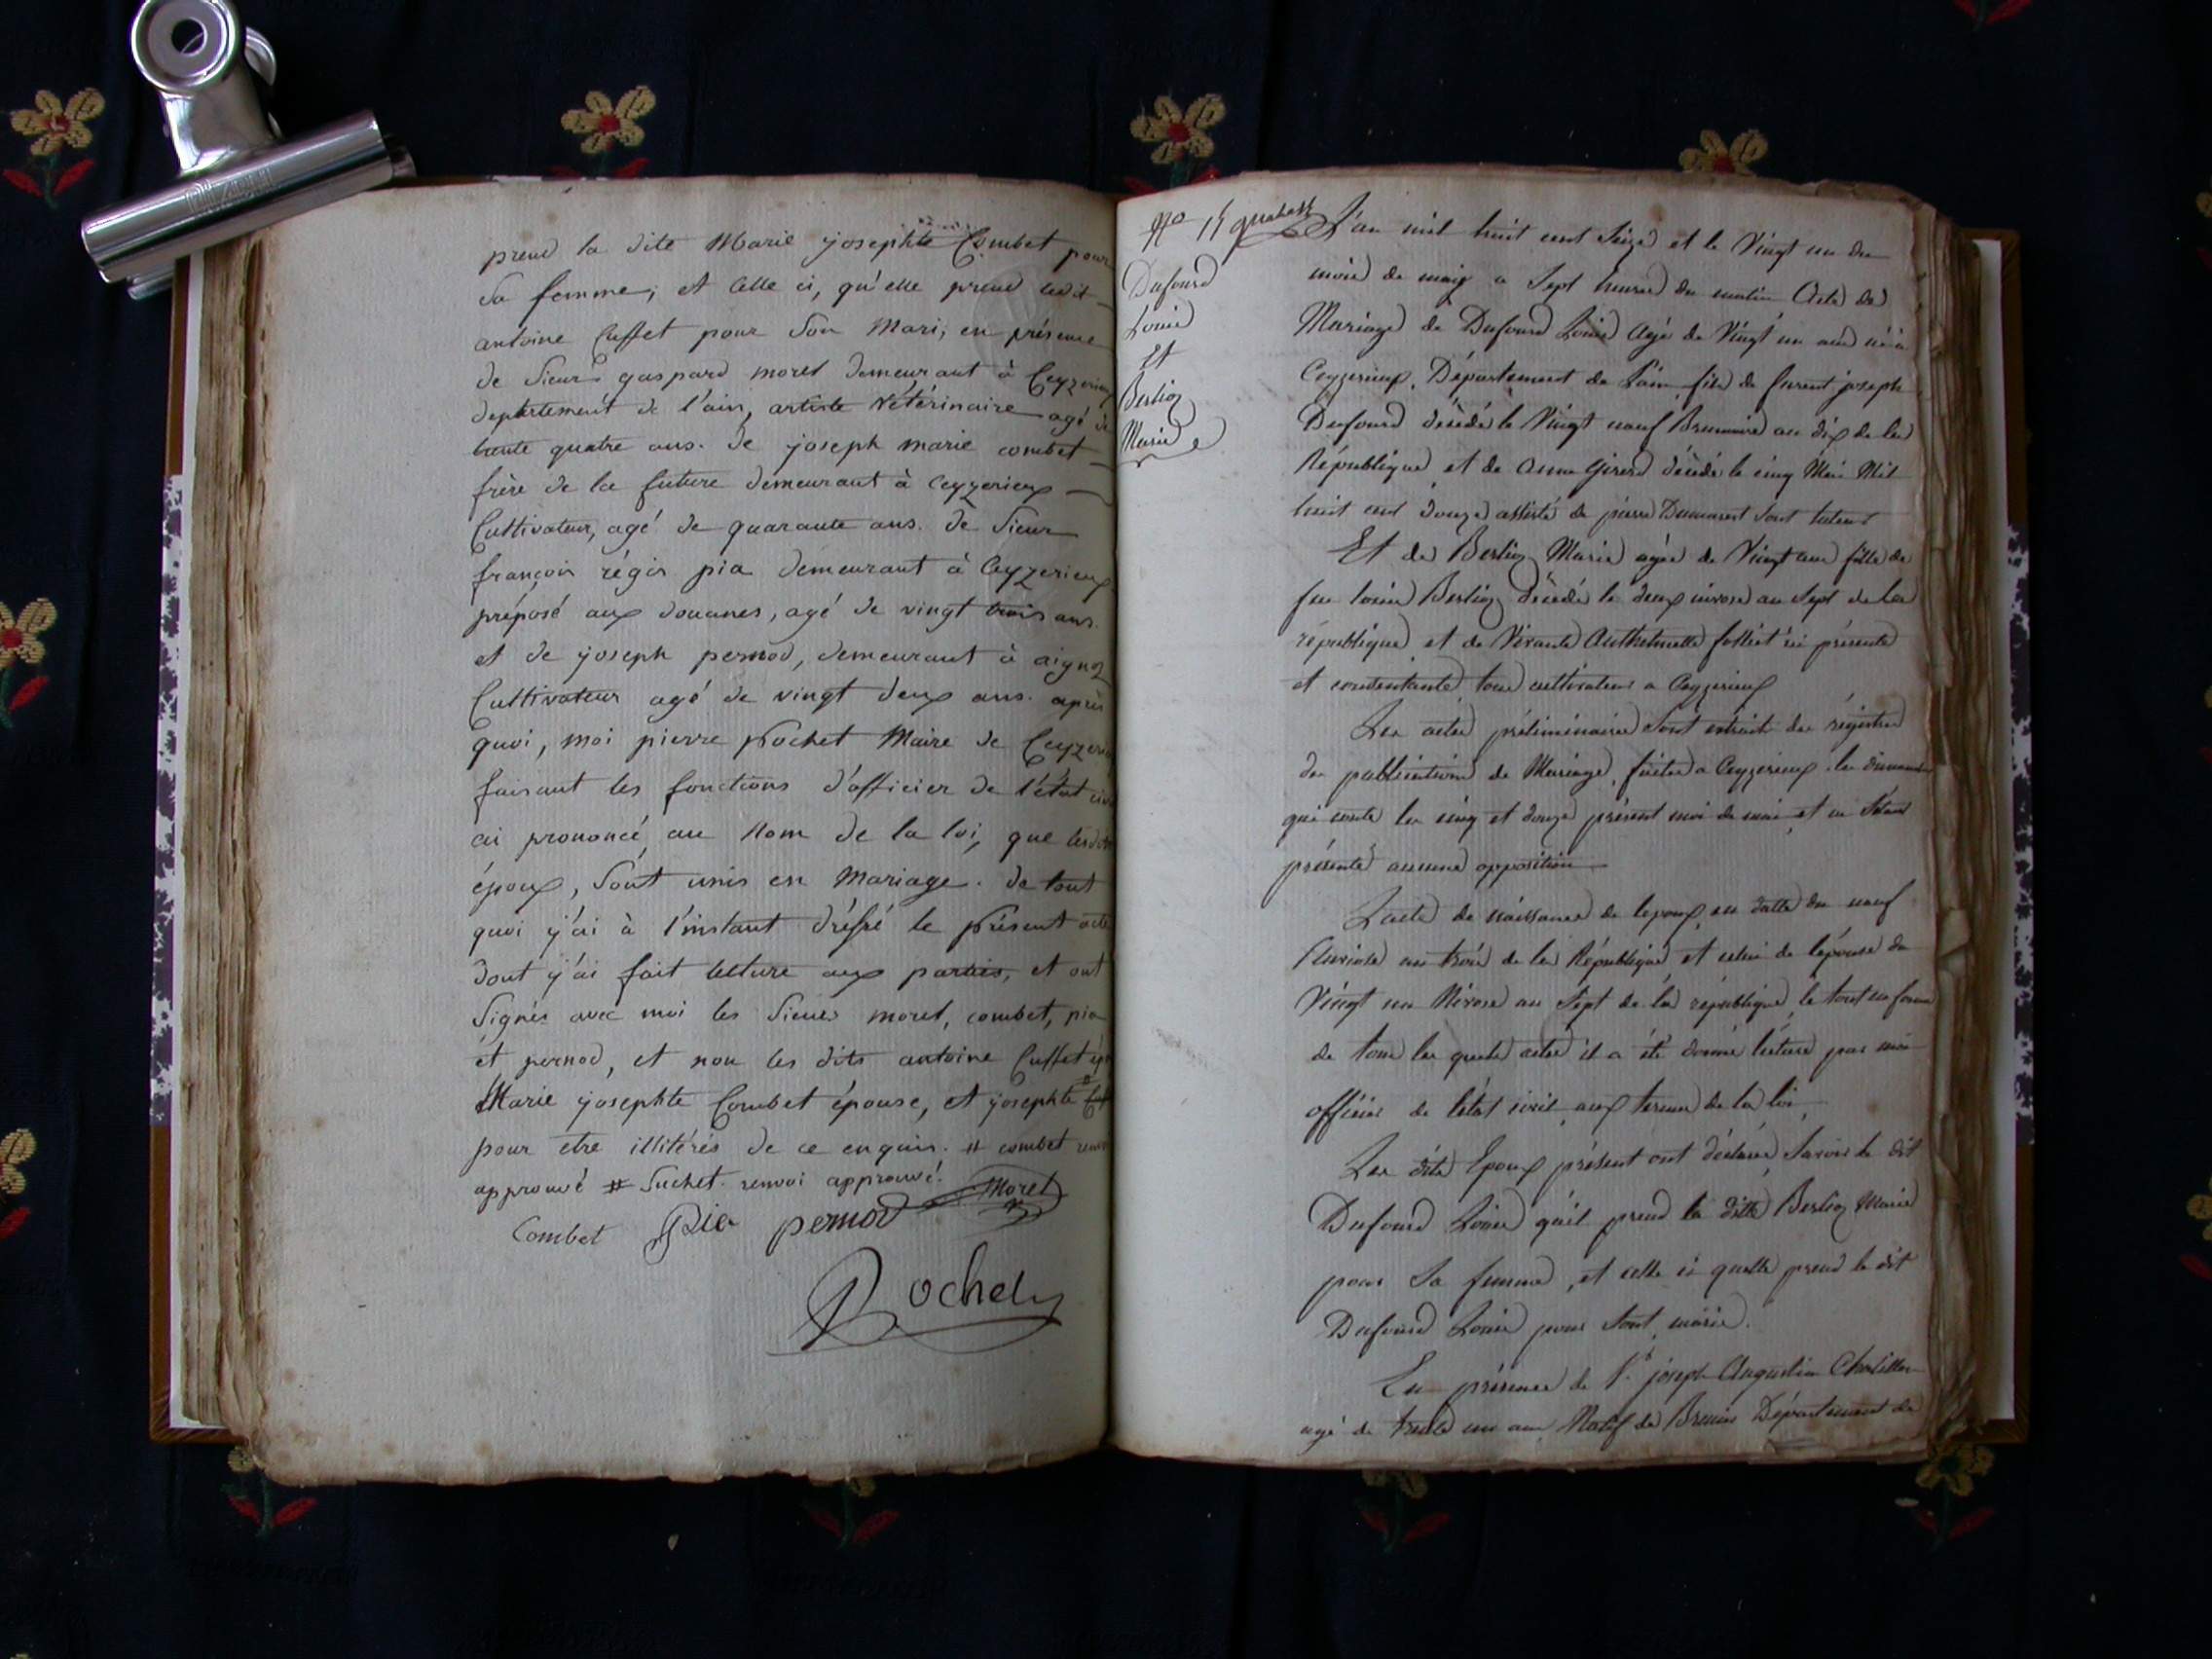 prend la dite Marie josephte Combet pour
Sa femme; et Celle ci, qu'elle prend ledit
antoine Cuffet pour Son Mari; en présence
de Sieurs gaspard moret demeurant à Ceyzerieux
departement de l'ain, artiste Vétérinaire agé de
trente quatre ans. de joseph marie combet
frère de la future demeurant à Ceyzerieux
Cultivateur, agé de quarante ans. de Sieur
françois régis pia demeurant à Ceyzerieux
préposé aux douanes, agé de vingt trois ans.
et de joseph pernod, demeurant à aignoz
Cultivateur agé de vingt deux ans. après
quoi, moi pierre Rochet Maire de Ceyzerieux
faisant les fonctions d'officier de l'état civ
ai prononcé, au Nom de la loi, que lesdits
époux, Sont unis en Mariage. de tout
quoi j'ai à l'instant dréssé le Présent acte
dont j'ai fait lecture aux parties, et ont
Signés avec moi les Sieurs moret, combet, pia
et pernod, et non les dits antoine Cuffet ép
Marie josephte Combet épouse, et josephte
pour etre illitérés de ce enquis. # combet renvoi
approuvé # Suchet. renvoi approuvé.
Moret
Combet Pia pernod
Rochet
No 14 quatorze
Dufourd
Louis
Et
Berlioz
Marie
L'an mil huit cent Seize et le Vingt un du
mois de may a Sept heures du matin Acte de
Mariage de Dufourd Louis Agé de Vingt un ans né à
Ceyzerieux, Département de l'ain, fils de furent joseph
Dufourd décédé le Vingt neuf Brumaire an dix de la
République, et de Anne Girerd décédé le cinq Mai Mil
huit cent douze assisté de pierre Dumarest Sont tuteur
Et de Berlioz Marie agée de Vingt ans fille de
feu louis Berlioz décédé le deux nivose an Sept de la
république et de Vivante Anthelmette folliet ici présente
et consentante tous cultivateurs a Ceyzerieux
Les actes préliminaires Sont extrait des régistres
des publications de Mariage, faites a Ceyzerieux les dimanches
qui conte les cinq et douze présent mois de mai, et ne S'étant
présenté aucune opposition
L'acte de naissance de l'epoux en datte du neuf
fluriose an trois de la République et celui de l'épouse du
Vingt un Nivose an Sept de la république, le tout en forme
de tous les quels actes il a été donné lécture par moi
officier de l'état civil, aux termes de la loi,
Les dits Epoux présent ont déclaré, Savoir le dit
Dufourd Louis qu'il prend la ditte Berlioz Marie
pour Sa femme, et celle ci quelle prend le dit
Dufourd Louis pour Sont marie.
En présence de Sr. joseph Augustin Chatillon
agé de trente un ans Natif de Brenis Département de